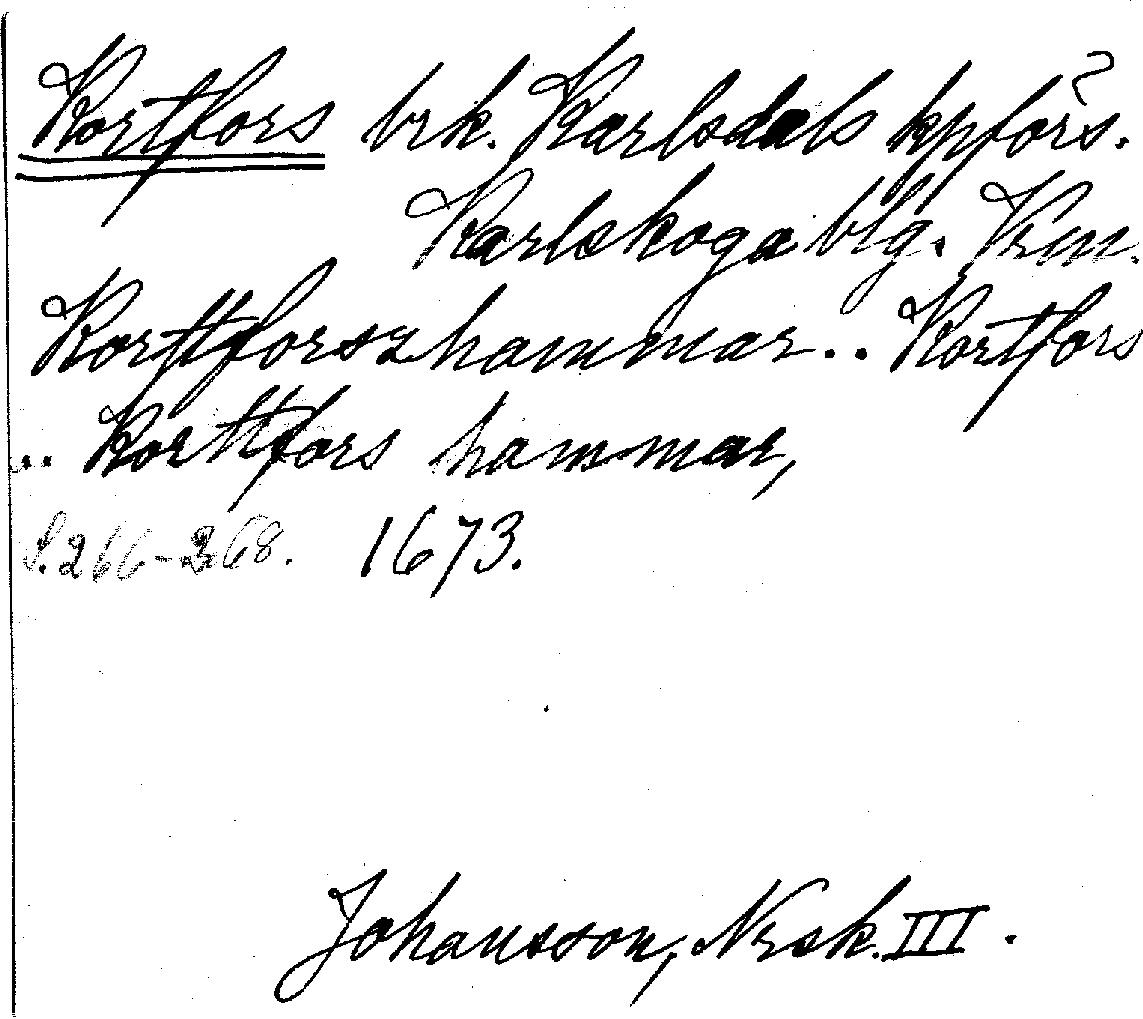 Kortfors brk. Karlsdals kpförs.
Karlskoga blg. Vrm.
Korttforszhammar.. Kortfors
.. Korttfors hammar,
S. 266-268. 1673.
Johansson, Nrsk. III.